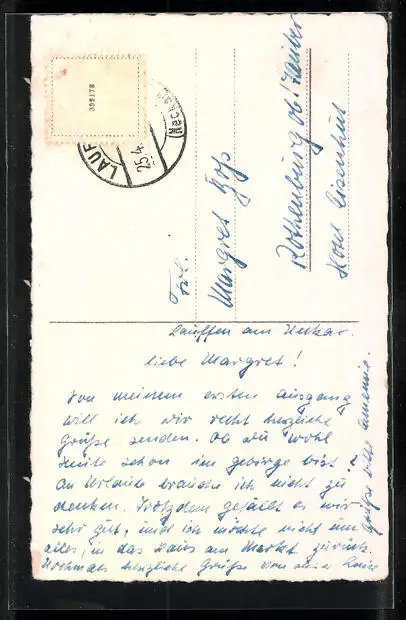 399178
LAUF
(Neck
25.4
Frl.
Margret
Rothenburg ob/Tauber
Hotel Eisenhut
Lauffen am Neckar.
Liebe Margret!
Von meinem ersten Ausgang
will ich dir recht herzliche
Grüße senden. Ob du wohl
heute schon im Gebirge bist?
An Urlaub brauche ich nicht zu
denken. Trotzdem gefällt es mir
sehr gut, und ich möchte nicht um
alles, in das Haus am Markt zurück.
Nochmals herzliche Grüße von
Grüße bitte